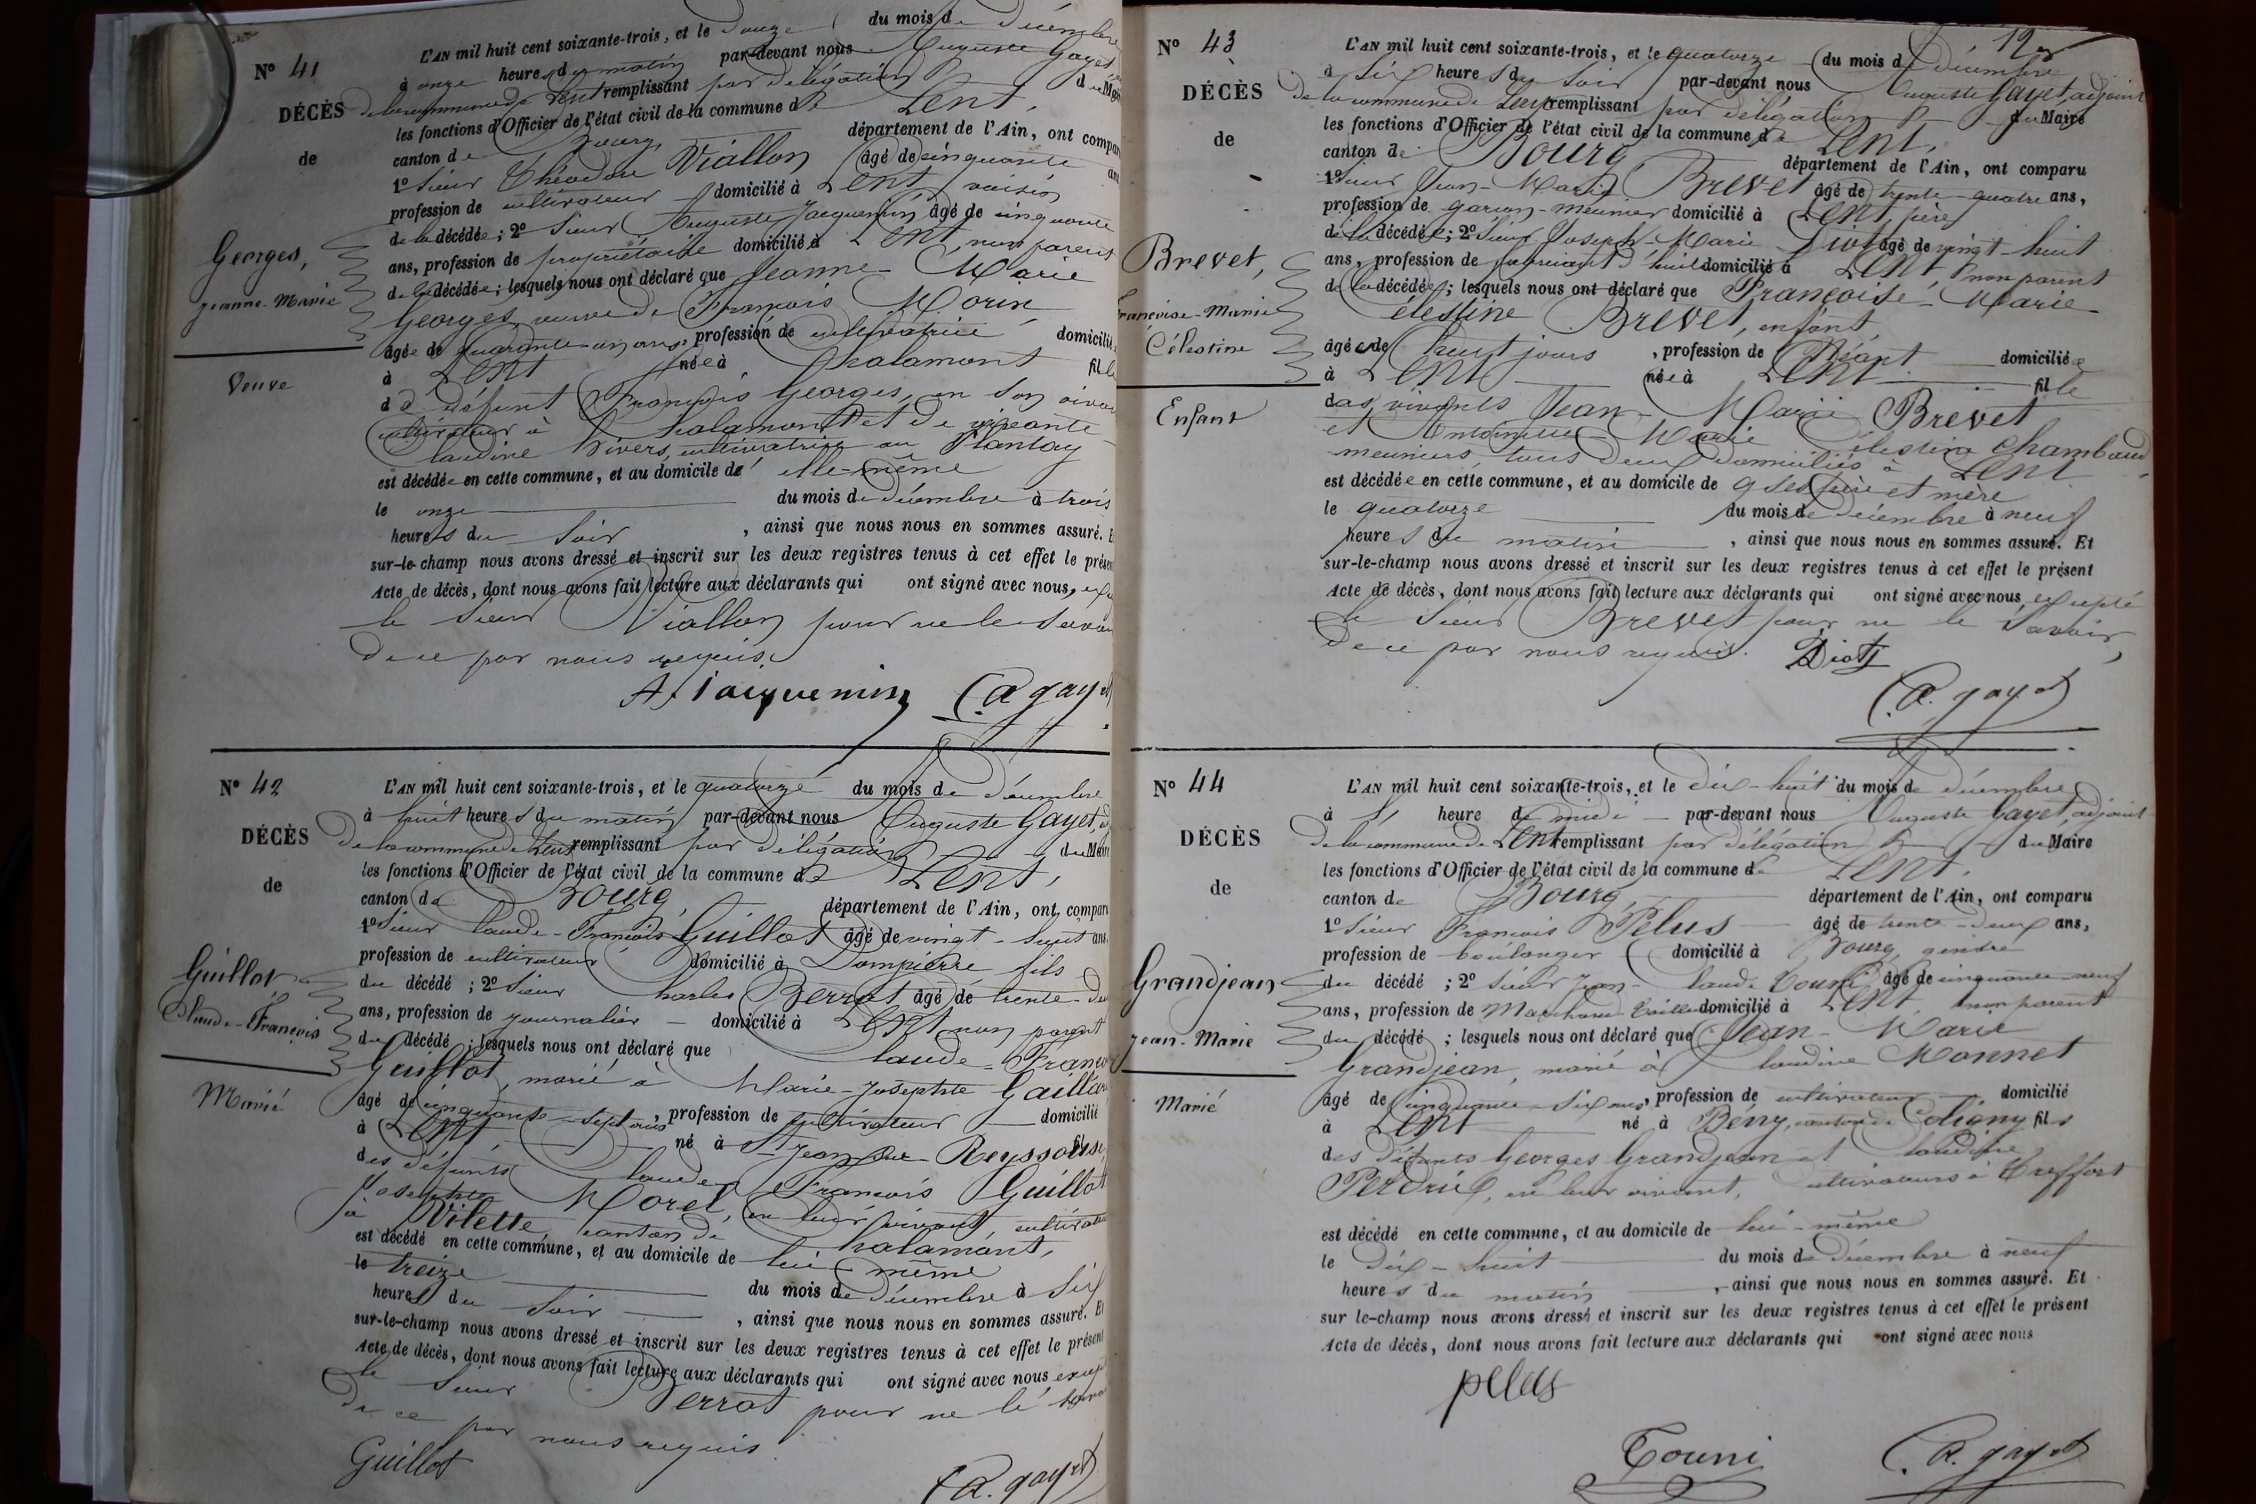 N° 41
DÉCÈS
de
Georges,
Jeanne-Marie
Veuve
L'AN mil huit cent soixante-trois, et le douze du mois de décembre
à onze heures du matin par-devant nous Auguste Gayet
de la commune de Lent remplissant par délégation du Maire
les fonctions d'Officier de l'état civil de la commune de Lent,
canton de Bourg, département de l'Ain, ont comparu
1° Sieur Théodore Viallon âgé de cinquante ans
profession de cultivateur domicilié à Lent, voisin
de la décédée; 2° Sieur Auguste Jacquemin âgé de cinquante
ans, profession de propriétaire domicilié à Lent, non parent
de la décédée; lesquels nous ont déclaré que Jeanne-Marie
Georges, veuve de François Morin
âgée de quarante-un ans, profession de cultivatrice domiciliée
à Lent née à Chalamont fille
de défunt François Georges, en son vivant
cultivateur à Chalamont et de vivante
Claudine Hivers, cultivatrice au Plantay
est décédée en cette commune, et au domicile d'elle-même
le onze du mois de décembre à trois
heures du soir, ainsi que nous nous en sommes assuré. Et
sur-le-champ nous avons dressé et inscrit sur les deux registres tenus à cet effet le présent
Acte de décès, dont nous avons fait lecture aux déclarants qui ont signé avec nous,
le sieur Viallon pour ne le savoir
de ce par nous requis.
A. Jacquemin A. gayet
N° 42
DÉCÈS
de
Guillot
Claude-François
Marié
L'AN mil huit cent soixante-trois, et le quatorze du mois de décembre
à huit heures du matin par-devant nous Auguste Gayet,
de la commune de Lent remplissant par délégation du Maire
les fonctions d'Officier de l'état civil de la commune de Lent,
canton de Bourg, département de l'Ain, ont comparu
1° Sieur Claude-François Guillot âgé de vingt-sept ans,
profession de cultivateur domicilié à Dompierre fils
du décédé; 2° Sieur Charles Perrat âgé de trente-
ans, profession de journalier domicilié à Lent non parent
du décédé; lesquels nous ont déclaré que Claude-François
Guillot, marié à Marie-Josephte Gaillard
âgé de cinquante-sept ans, profession de cultivateur domicilié
à Lent né à St Jean sur Reyssouse fils
des défunts Claude François Guillot
Josephte Morel, en leur vivant, cultivateurs
à Vilette, canton de Chalamont,
est décédé en cette commune, et au domicile de lui-même
le treize du mois de décembre à six
heures du soir, ainsi que nous nous en sommes assuré. Et
sur-le-champ nous avons dressé et inscrit sur les deux registres tenus à cet effet le présent
Acte de décès, dont nous avons fait lecture aux déclarants qui ont signé avec nous excepté
le sieur Perrat pour ne le savoir
de ce par nous requis
Guillot A. gayet
N° 43
DÉCÈS
de
Brevet,
Françoise-Marie
Célestine
Enfant
L'AN mil huit cent soixante-trois, et le quatorze du mois de décembre
à six heures du soir par-devant nous Auguste Gayet, adjoint
de la commune de Lent remplissant par délégation du Maire
les fonctions d'Officier de l'état civil de la commune de Lent,
canton de Bourg département de l'Ain, ont comparu
1° Sieur Jean-Marie Brevet âgé de trente-quatre ans,
profession de garçon-meunier domicilié à Lent, père
de la décédée; 2° Sieur Joseph-Marie Diot âgé de vingt-huit
ans, profession de fabricant d'huile domicilié à Lent, non parent
de la décédée; lesquels nous ont déclaré que Françoise-Marie
Célestine Brevet, enfant
âgée de huit jours, profession de Néant domiciliée
à Lent née à Lent fille
des vivants Jean-Marie Brevet
et Antoinette-Marie Célestine Chambaud
meuniers, tous deux domiciliés à Lent
est décédée en cette commune, et au domicile de ses père et mère
le quatorze du mois de décembre à neuf
heures du matin, ainsi que nous nous en sommes assuré. Et
sur-le-champ nous avons dressé et inscrit sur les deux registres tenus à cet effet le présent
Acte de décès, dont nous avons fait lecture aux déclarants qui ont signé avec nous, excepté
le sieur Brevet pour ne le savoir,
de ce par nous requis. Diot
A. gayet
N° 44
DÉCÈS
de
Grandjean
Jean-Marie
Marié
L'AN mil huit cent soixante-trois, et le dix-huit du mois de décembre
à heure de midi par-devant nous Auguste Gayet, adjoint
de la commune de Lent remplissant par délégation du Maire
les fonctions d'Officier de l'état civil de la commune de Lent,
canton de Bourg, département de l'Ain, ont comparu
1° Sieur François Pelus âgé de trente-deux ans,
profession de boulanger domicilié à Bourg, gendre
du décédé; 2° Sieur Jean-Claude Touni âgé de cinquante-neuf
ans, profession de Marchand domicilié à Lent, non parent
du décédé; lesquels nous ont déclaré que Jean-Marie
Grandjean, marié à Claudine Monnet
âgé de cinquante-six ans, profession de cultivateur domicilié
à Lent né à Bény, canton de Coligny fils
des défunts Georges Grandjean et Claudine
Perdrix, en leur vivant, cultivateurs à Treffort
est décédé en cette commune, et au domicile de lui-même
le dix-huit du mois de décembre à neuf
heures du matin, ainsi que nous nous en sommes assuré. Et
sur le-champ nous avons dressé et inscrit sur les deux registres tenus à cet effet le présent
Acte de décès, dont nous avons fait lecture aux déclarants qui ont signé avec nous
pelus
Touni A. gayet